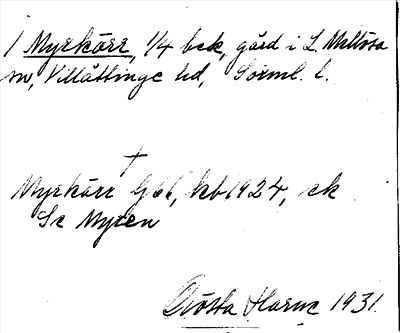 1 Myrkärr, 1/4 bek, gård i L. Mellösa
sn, Villåttinge hd, Sörml. l.
+
Myrkärr G66, kb 1924, ek
Se Myren
Gösta 1931.